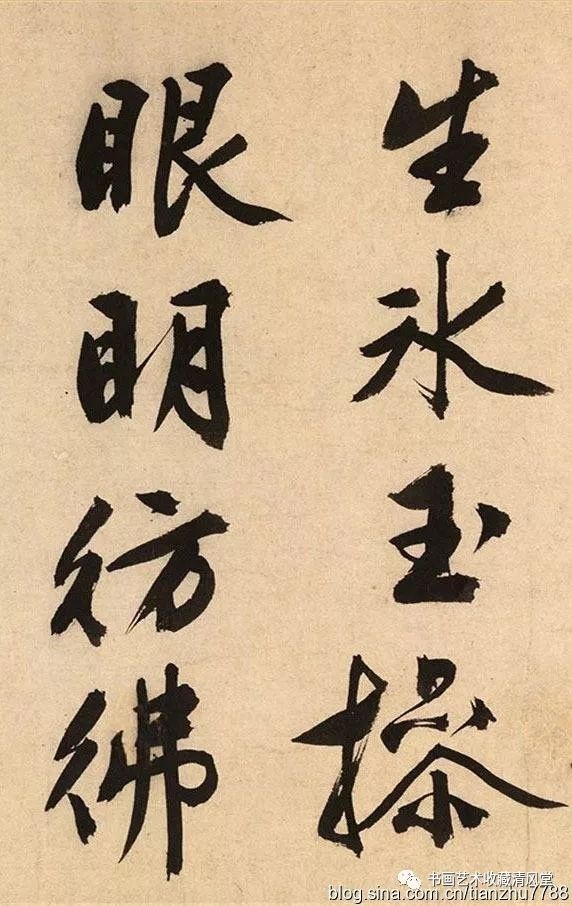 生冰玉操
眼明彷彿
书画艺术收藏清风堂
blog.sina.com.cn/tianzhu7788